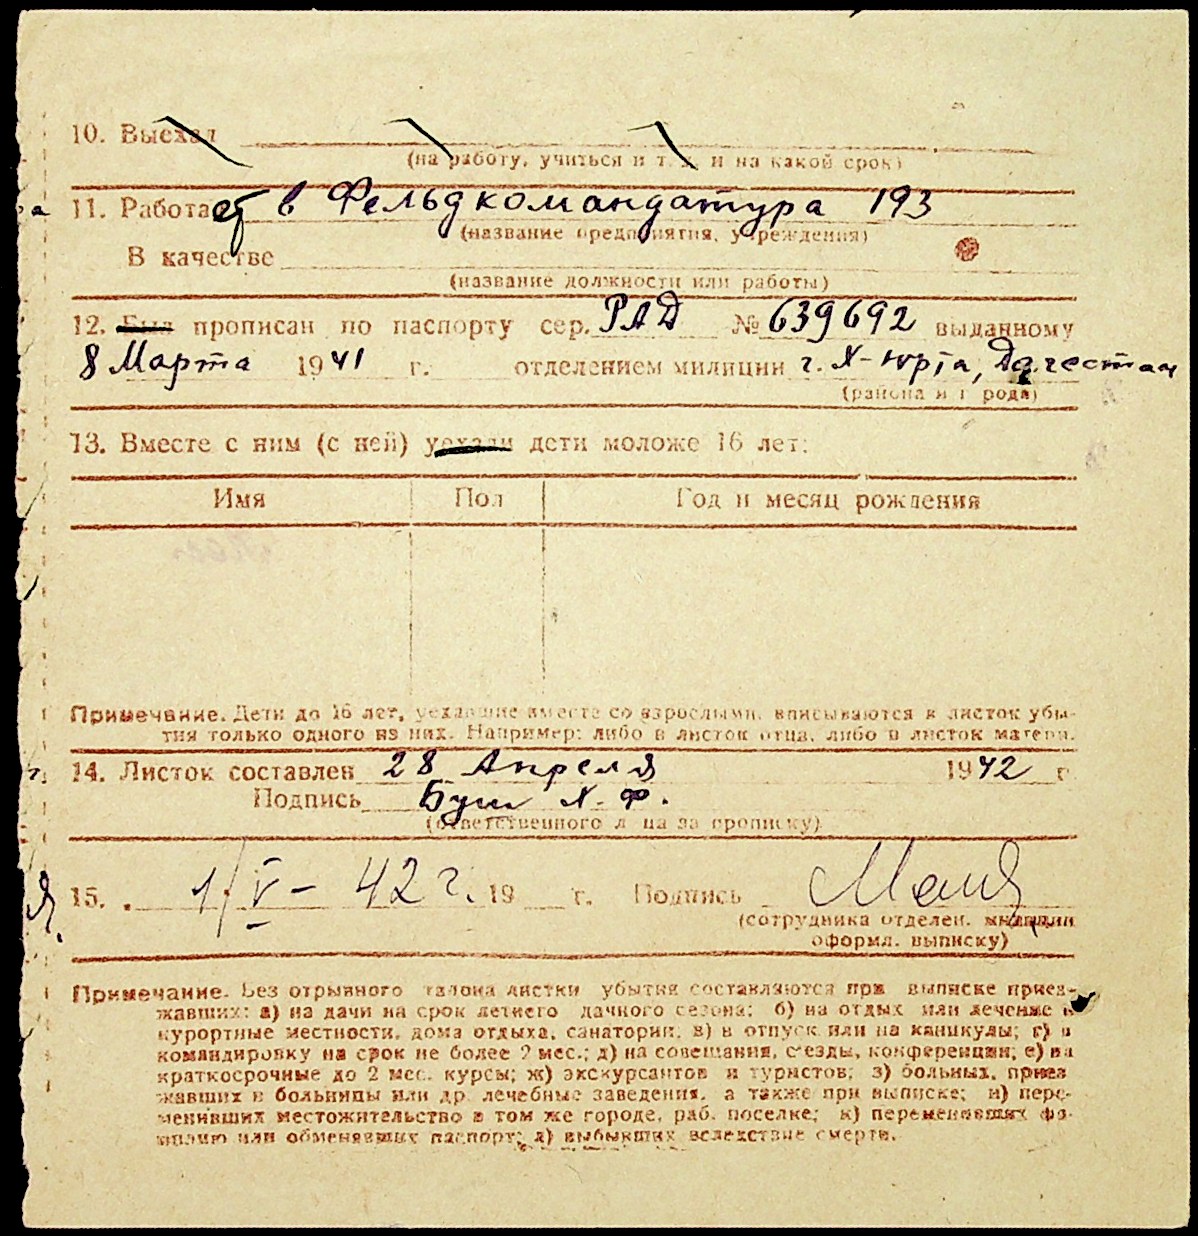 10. Выехал
(на работу, учиться и т. д. и на какой срок)
11. Работает в Фельдкомандатура 193
(название предприятия, учреждения)
В качестве
(название должности или работы)
12. Был прописан по паспорту сер. РАД № 639692 выданному
8 Марта 1941 г. отделением милиции г. Х-Юрта, Дагестан
(района и города)
13. Вместе с ним (с ней) уехали дети моложе 16 лет:
Имя Пол Год и месяц рождения
Примечание. Дети до 16 лет, уехавшие вместе со взрослыми, вписываются в листок убы-
тия только одного из них. Например: либо в листок отца, либо в листок матери.
14. Листок составлен 28 Апреля 1942 г
Подпись Буш Х. Ф.
(ответственного лица за прописку)
15. 1/V – 42 г. 19 г. Подпись
(сотрудника отделен. милиции
оформл. выписку)
Примечание. Без отрывного талона листки убытия составляются при выписке приез-
жавших: а) на дачи на срок летнего дачного сезона; б) на отдых или лечение в
курортные местности, дома отдыха, санатории; в) в отпуск или на каникулы; г) в
командировку на срок не более 2 мес.; д) на совещания, съезды, конференции; е) на
краткосрочные до 2 мес. курсы; ж) экскурсантов и туристов; з) больных, приез
жавших в больницы или др. лечебные заведения, а также при выписке; и) пере-
менивших местожительство в том же городе, раб. поселке; к) переменивших фа-
милию или обменявших паспорт; л) выбывших вследствие смерти.